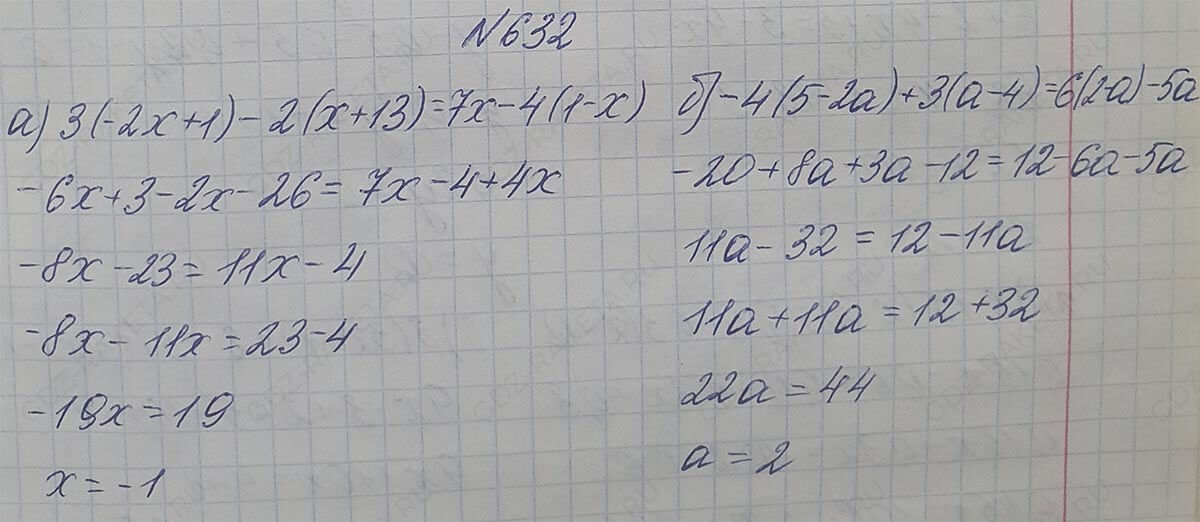 N632
а) 3(-2x+1)-2(x+13)=7x-4(1-x)
-6x+3-2x-26=7x-4+4x
-8x-23=11x-4
-8x-11x=23-4
-19x=19
x=-1
б) -4(5-2a)+3(a-4)=6(2-a)-5a
-20+8a+3a-12=12-6a-5a
11a-32=12-11a
11a+11a=12+32
22a=44
a=2